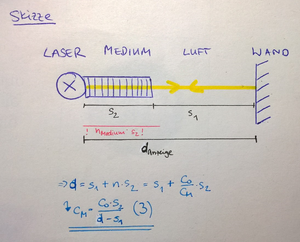 Skizze
LASER MEDIUM LUFT WAND
S₂ S₁
! nMedium · S₂ !
dAnzeige
⇒ d = S₁ + n · S₂ = S₁ + C₀/CM · S₂
↳ CM = C₀ · S₂/d - S₁ (3)